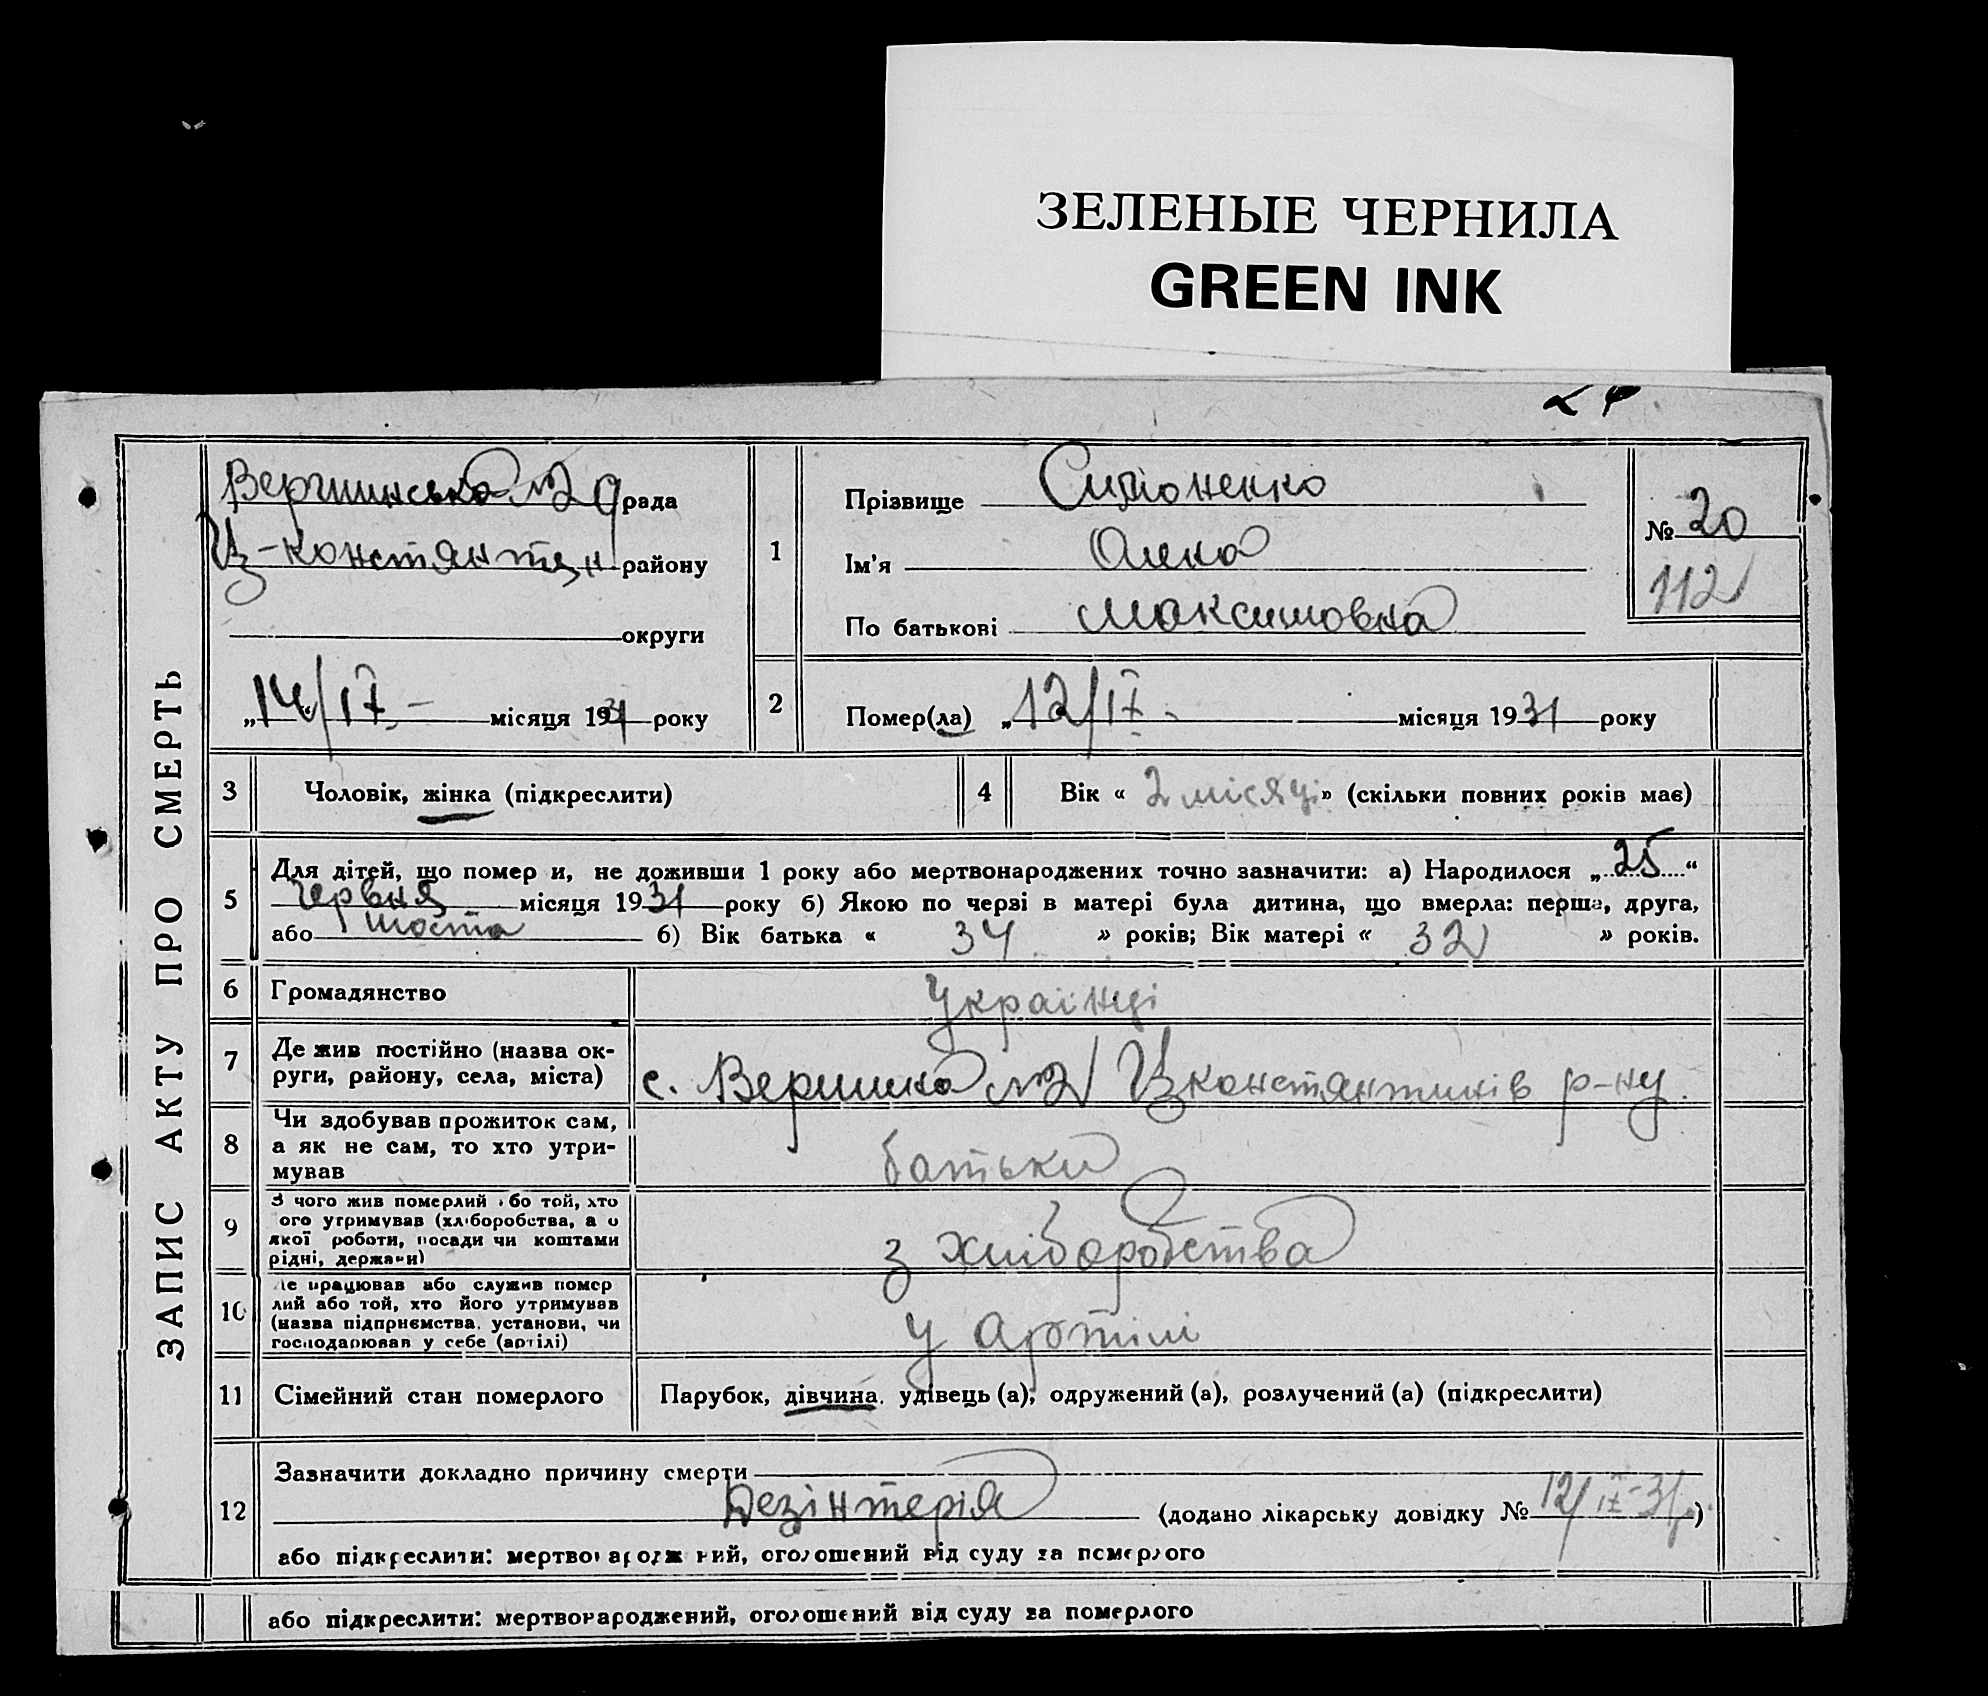 ЗЕЛЕНЫЕ ЧЕРНИЛА
GREEN INK
ЗАПИС АКТУ ПРО СМЕРТЬ
Вершинська №2 рада
Ц-Констянтин району
округи
„14“/IX - місяця 1931 року
1
Прізвище
Ім'я
По батькові Максимовна
№ 20
112
2
Помер(ла) „12/IX - місяця 1931 року
3 Чоловік, жінка (підкреслити)
4 Вік « 2 місяці » (скільки повних років має)
5 Для дітей, що помер и, не доживши 1 року або мертвонароджених точно зазначити: а) Народилося „25“
червня місяця 1931 року б) Якою по черзі в матері була дитина, що вмерла: перша, друга,
або шоста б) Вік батька « 34 » років; Вік матері « 32 » років.
6 Громадянство Українці
7 Де жив постійно (назва ок-
руги, району, села, міста) с. Вершина №2 Цконстянтинів р-ну.
8 Чи здобував прожиток сам,
а як не сам, то хто утри-
мував батьки
9 З чого жив померлий бо той, хто
ого утримував (хліборобства, а о
якої роботи, посади чи коштами
рідні, держави) з хліборобства
10 Де працював або служив помер
лий або той, хто його утримував
(назва підприємства, установи, чи
господарював у себе (артілі) у артілі
11 Сімейний стан померлого Парубок, дівчина, удівець (а), одружений (а), розлучений (а) (підкреслити)
12 Зазначити докладно причину смерти
Дезінтерія (додано лікарську довідку № 12/IX-31р.)
або підкреслити: мертвонароджений, оголошений від суду за померлого
або підкреслити: мертвонароджений, оголошений від суду за померлого